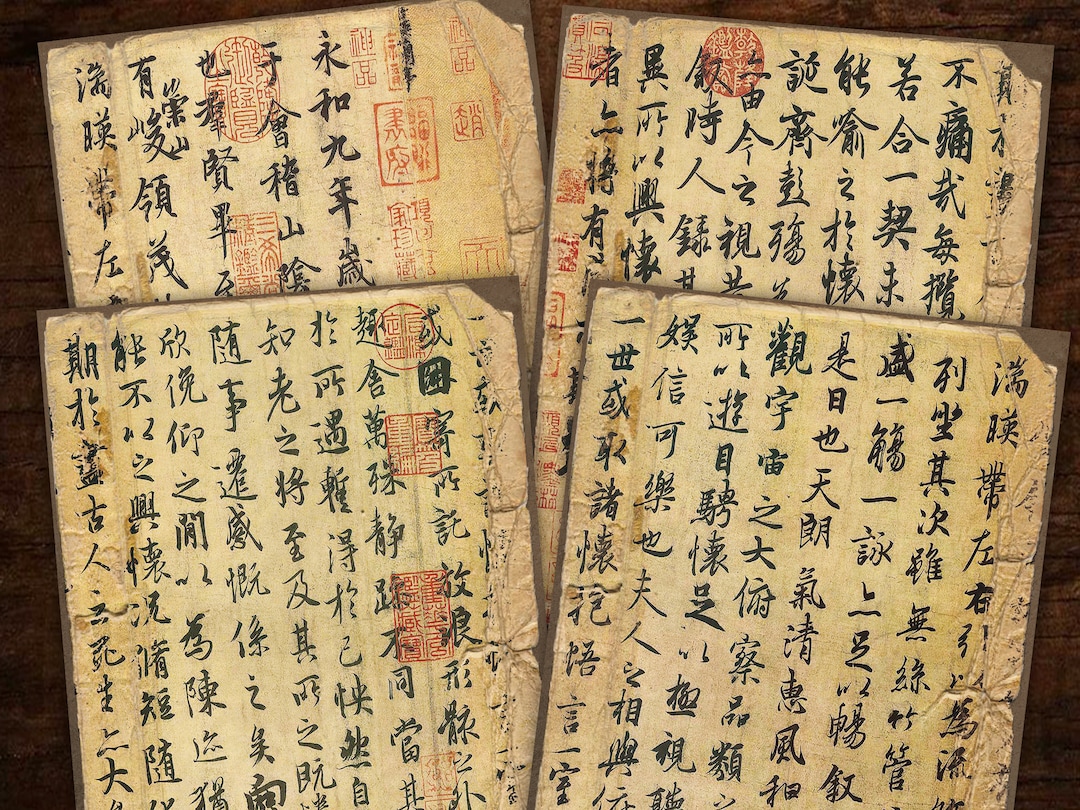 永和九年歲
于會稽山陰
也羣賢畢至
有崇山峻領茂
湍暎帶左
神品
書府
趙
不痛哉每攬
若合一契未
能喻之於懷
誕齊彭殤
由今之視昔
敘時人錄其
異所以興懷
者亦將有
或因寄所託放浪形骸之外
趣舍萬殊靜躁不同當其
於所遇蹔得於己怏然自
知老之將至及其所之既
隨事遷感慨係之矣向
欣俛仰之閒以為陳迹猶
能不以之興懷況脩短隨化
期於盡古人云死生亦大
湍暎帶左右引以為流
列坐其次雖無絲竹管
盛一觴一詠亦足以暢敘
是日也天朗氣清惠風和
觀宇宙之大俯察品類
所以遊目騁懷足以極視聽
娛信可樂也夫人之相與俯
一世或取諸懷抱悟言一室